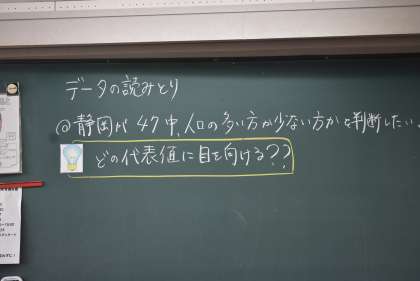 データの読みとり
@静岡が47中、人口の多い方か少ない方かを判断したい。
どの代表値に目を向ける??